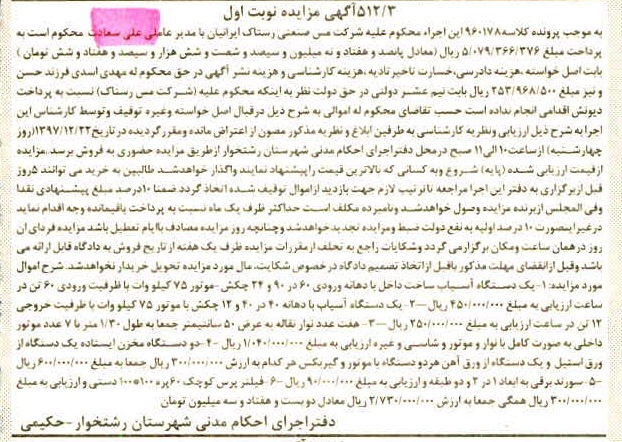 ۵۱۲/۳آگهی مزایده نوبت اول
به موجب پرونده کلاسه۹۶۰۱۷۸این اجراء محکوم علیه شرکت مس صنعتی رستاک ایرانیان با مدیر عاملی علی سعادت محکوم است به
پرداخت مبلغ ۵/۰۷۹/۳۶۶/۳۷۶ ریال (معادل پانصد و هفتاد و نه میلیون و سیصد و شصت و شش هزار و سیصد و هفتاد و شش تومان )
بابت اصل خواسته ،هزینه دادرسی،خسارت تاخیر تادیه ،هزینه کارشناسی و هزینه نشر آگهی در حق محکوم له مهدی اسدی فرزند حسن
و نیز مبلغ ۲۵۳/۹۶۸/۵۰۰ ریال بابت نیم عشر دولتی در حق دولت نظر به اینکه محکوم علیه (شرکت مس رستاک) نسبت به پرداخت
دیونش اقدامی انجام نداده است حسب تقاضای محکوم له اموالی به شرح ذیل درقبال اصل خواسته وغیره توقیف وتوسط کارشناس این
اجرا به شرح ذیل ارزیابی ونظریه کارشناسی به طرفین ابلاغ و نظریه مذکور مصون از اعتراض مانده ومقررگردیده در تاریخ۱۳۹۷/۱۲/۲۲(روز
چهارشنبه) ازساعت۱۰الی۱۱ صبح درمحل دفتراجرای احکام مدنی شهرستان رشتخوار ازطریق مزایده حضوری به فروش برسد.مزایده
ازقیمت ارزیابی شده (پایه) شروع وبه کسانی که بالاترین قیمت راپیشنهاد نمایند واگذار خواهدشد طالبین به خرید می توانند ۵روز
قبل ازبرگزاری به دفتر این اجرا مراجعه تا ترتیب لازم جهت بازدید ازاموال توقیف شده اتخاذ گردد ضمنا ۱۰درصد مبلغ پیشنهادی نقدا
وفی المجلس ازبرنده مزایده وصول خواهدشد ونامبرده مکلف است حداکثر ظرف یک ماه نسبت به پرداخت باقیمانده وجه اقدام نماید
درغیراینصورت ۱۰ درصد اولیه به نفع دولت ضبط ومزایده تجدید خواهدشد وچنانچه روز مزایده مصادف باایام تعطیل باشد مزایده فردای ان
روز درهمان ساعت ومکان برگزار می گردد وشکایات راجع به تخلف از مقررات مزایده ظرف یک هفته از تاریخ فروش به دادگاه قابل ارائه می
باشد وقبل ازانقضای مهلت مذکور یاقبل ازاتخاذ تصمیم دادگاه درخصوص شکایت، مال مورد مزایده تحویل خریدار نخواهدشد. شرح اموال
مورد مزایده: ۱-یک دستگاه آسیاب ساخت داخل با دهانه ورودی ۶۰ در ۹۰ و ۲۴ چکش -موتور ۷۵ کیلو وات با ظرفیت ورودی ۶۰ تن در
ساعت ارزیابی به مبلغ ۴۵۰/۰۰۰/۰۰۰ ریال—۲-یک دستگاه آسیاب با دهانه ۴۰ در ۴۰ و ۱۲ چکش با موتور ۷۵ کیلو وات با ظرفیت خروجی
۱۲ تن در ساعت ارزیابی به مبلغ ۲۵۰/۰۰۰/۰۰۰ ریال—۳- هفت عدد نوار نقاله به عرض ۵۰ سانتیمتر جمعا به طول ۱/۳۰ متر با ۷ عدد موتور
داخلی به صورت کامل با نوار و موتور و شاسی و غیره ارزیابی به مبلغ ۱/۰۴۰/۰۰۰/۰۰۰ ریال -۴-دو دستگاه مخزن ایستاده یک دستگاه از
ورق استیل و یک دستگاه از ورق آهن هر دو دستگاه با موتور و گیربکس هر کدام به ارزش ۳۰۰/۰۰۰/۰۰۰ ریال جمعا به مبلغ ۶۰۰/۰۰۰/۰۰۰ ریال
-۵-سورند برقی به ابعاد ۱ در ۲ و دو طبقه و ارزیابی به مبلغ ۹۰/۰۰۰/۰۰۰ ریال -۶-فیلتر پرس کوچک ۶۰پره ۱۰۰*۱۰۰ دستی و ارزیابی به مبلغ
۳۰۰/۰۰۰/۰۰۰ ریال همگی جمعا به ارزش ۲/۷۳۰/۰۰۰/۰۰۰ ریال معادل دویست و هفتاد و سه میلیون تومان
دفتراجرای احکام مدنی شهرستان رشتخوار-حکیمی